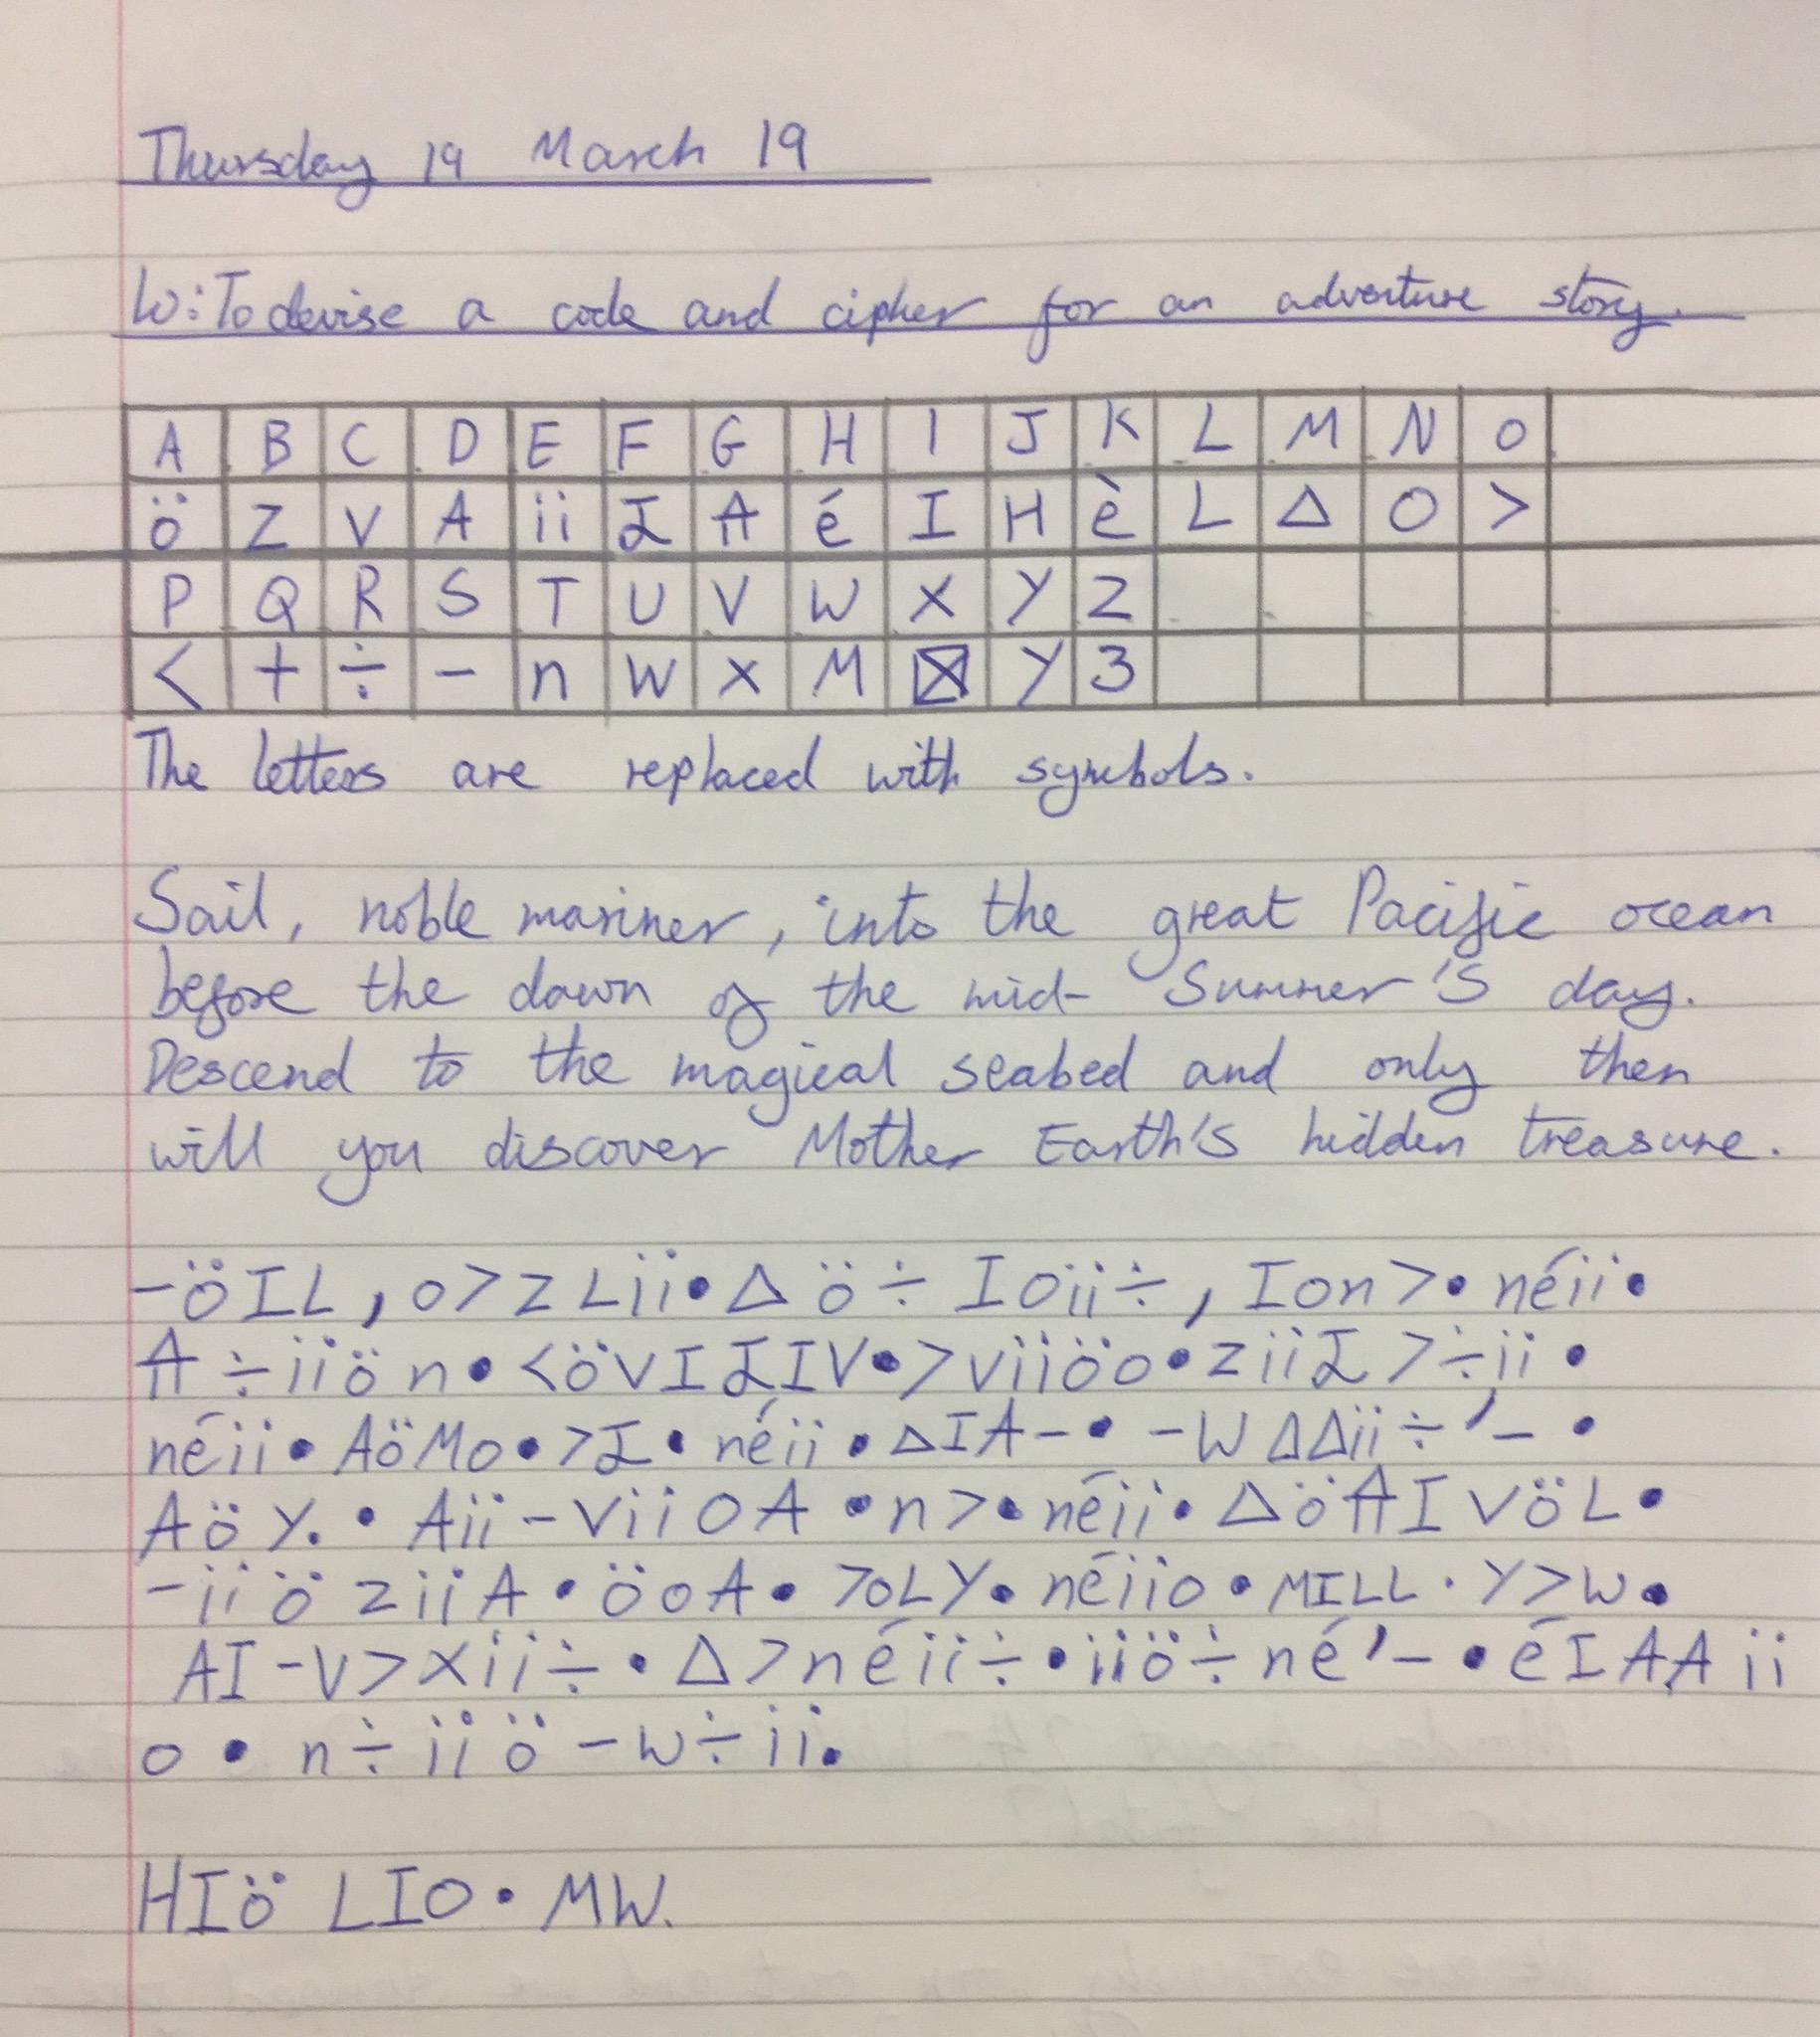 Thursday 19 March 19
Lo: To devise a code and cipher for an adventure story.
A B C D E F G H I J K L M N O
ö Z V A ii É é I H è L Δ O >
P Q R S T U V W X Y Z
< + ÷ - n W x M ⊠ Y 3
The letters are replaced with symbols.
Sail, noble mariner, into the great Pacific ocean
before the dawn of the mid- Summer's day.
Descend to the magical seabed and only then
will you discover Mother Earth's hidden treasure.
-öIL, o>zLii•Δö÷IOii÷, Ion>•néii•
A÷iiön•<övIƗIV•>viiöo•ziiƗ>÷ii•
néii•AöMo•>Ɨ•néii•ΔIA-•-WΔΔii÷'-•
AöY.•Aii-ViiOA•n>•néii•ΔöAIVöL•
-iiöziiA•öoA•>oLY•néiio•MILL·Y>w•
AI-V>Xii÷•Δ>néii÷•iiö÷né'-•éIAAii
o•n÷iiö-w÷ii.
HIö LIO•MW.